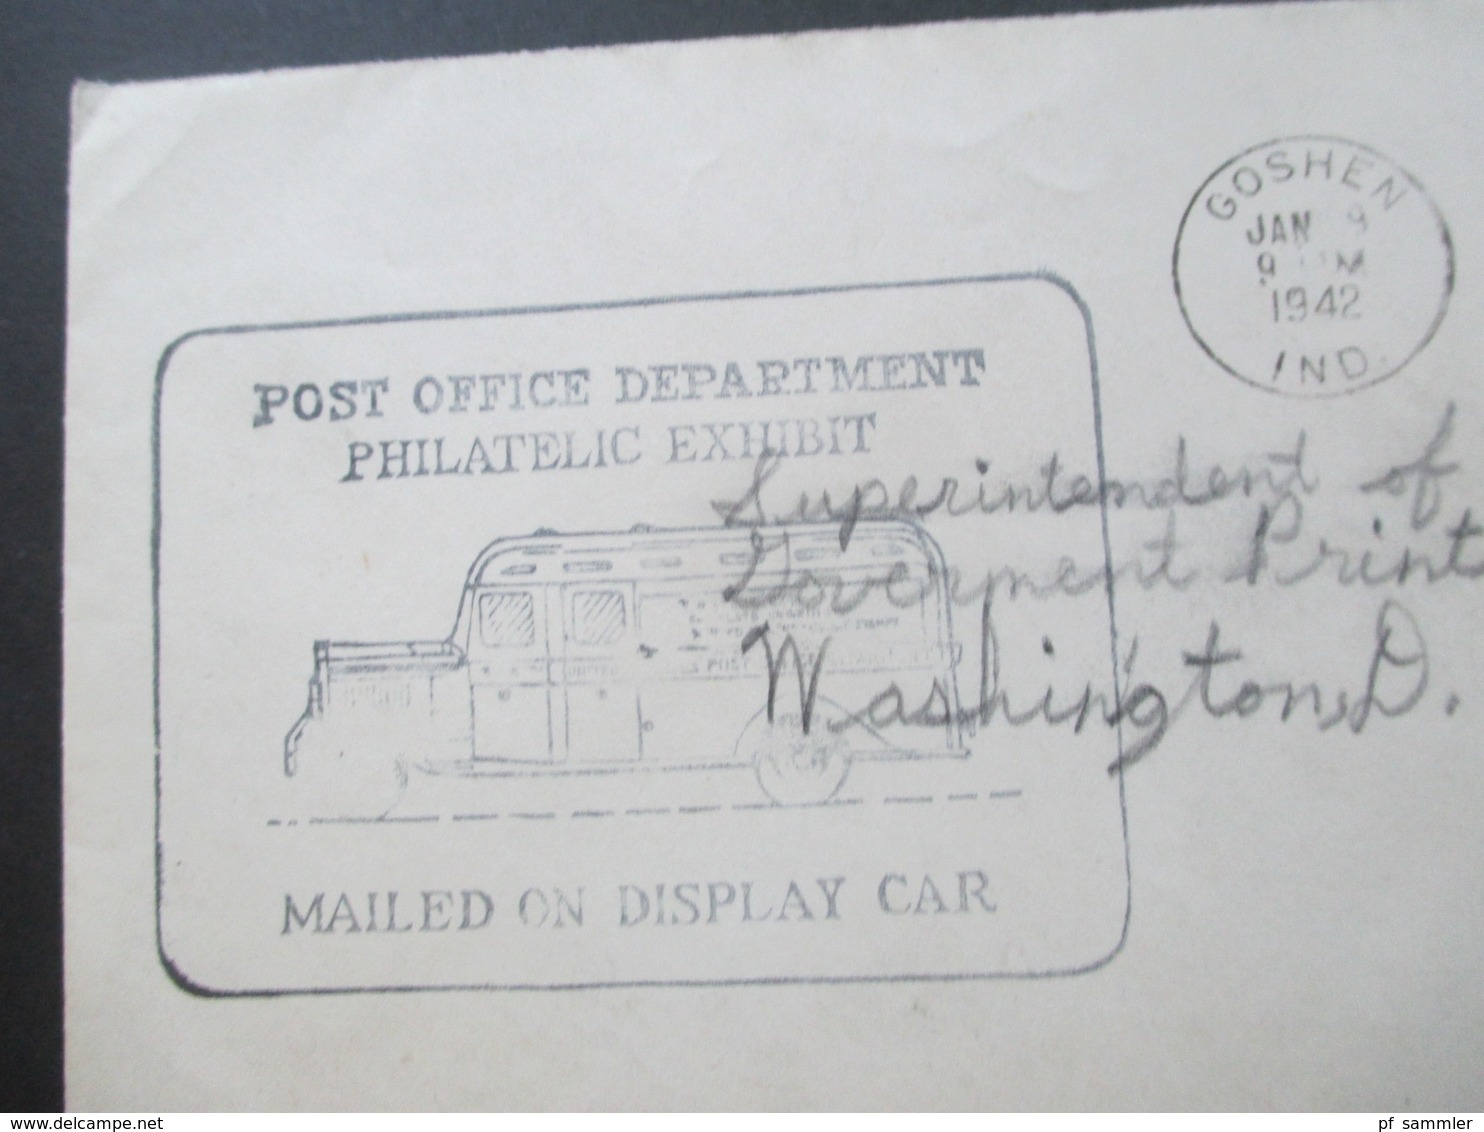 GOSHEN
JAN 9
9 M
1942
IND.
POST OFFICE DEPARTMENT
PHILATELIC EXHIBIT
Superintendent of
Goverment Print
Washington, D.
POST
MAILED ON DISPLAY CAR
www.delcampe.net
pf_sammler